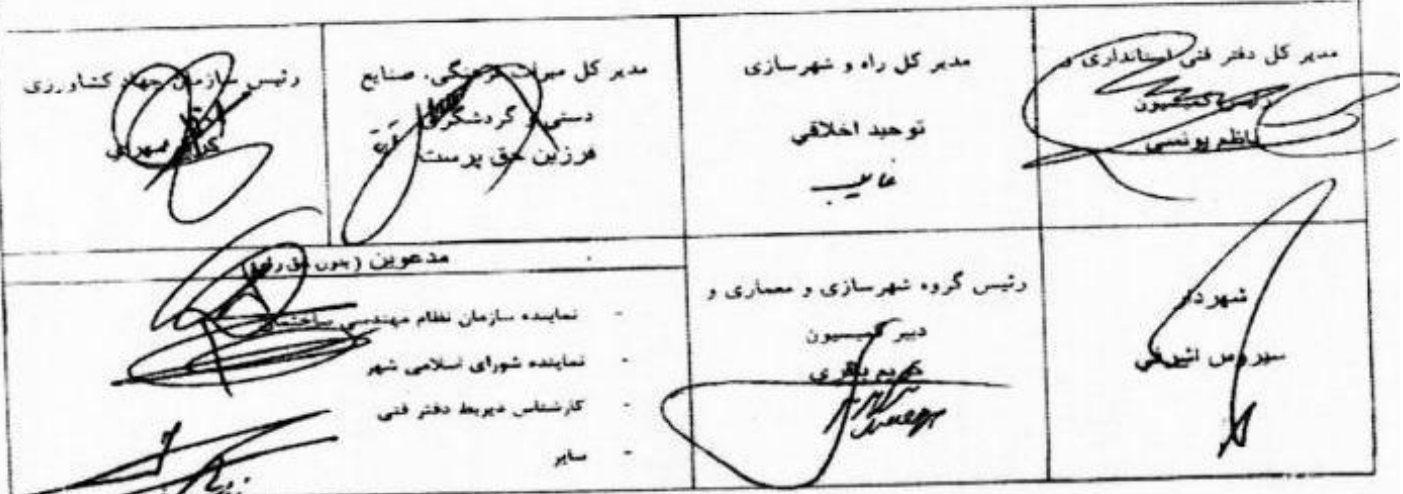 مدیر کل دفتر فنی استانداری و
رئیس کمیسیون
کاظم یونسی
مدیر کل راه و شهرسازی
توحید اخلاقی
غایب
مدیر کل میراث فرهنگی، صنایع
دستی و گردشگری
فرزین حق پرست
رئیس سازمان جهاد کشاورزی
شهردار
سیروس
رئیس گروه شهرسازی و معماری و
دبیر کمیسیون
کریم باقری
مدعوین (بدون حق رای)
- نماینده سازمان نظام مهندسی ساختمان
- نماینده شورای اسلامی شهر
- کارشناس ذیربط دفتر فنی
- سایر